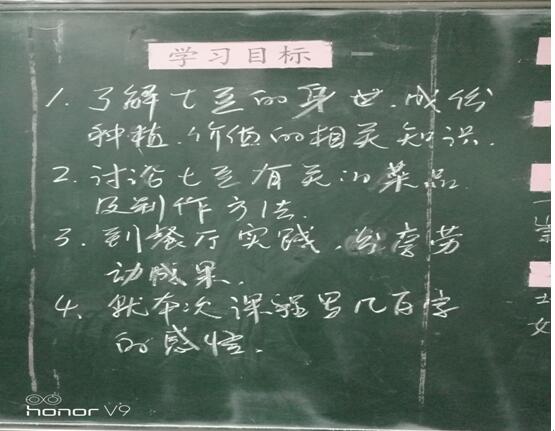 学习目标
1. 了解土豆的身世.成份
种植.价值的相关知识.
2. 讨论土豆有关的菜品
及制作方法.
3. 到餐厅实践.分享劳
动成果.
4. 就本次课程写几百字
的感悟.
土
女
honor V9